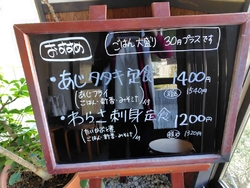 おすすめ
ごはん大盛り 30円プラスです
・あじタタキ定食 1400円
あじフライ
ごはん・新香・みそ汁付
(税込) 1540円
・わらさ刺身定食 1200円
ごはん・新香・みそ汁付
(税込) 1320円